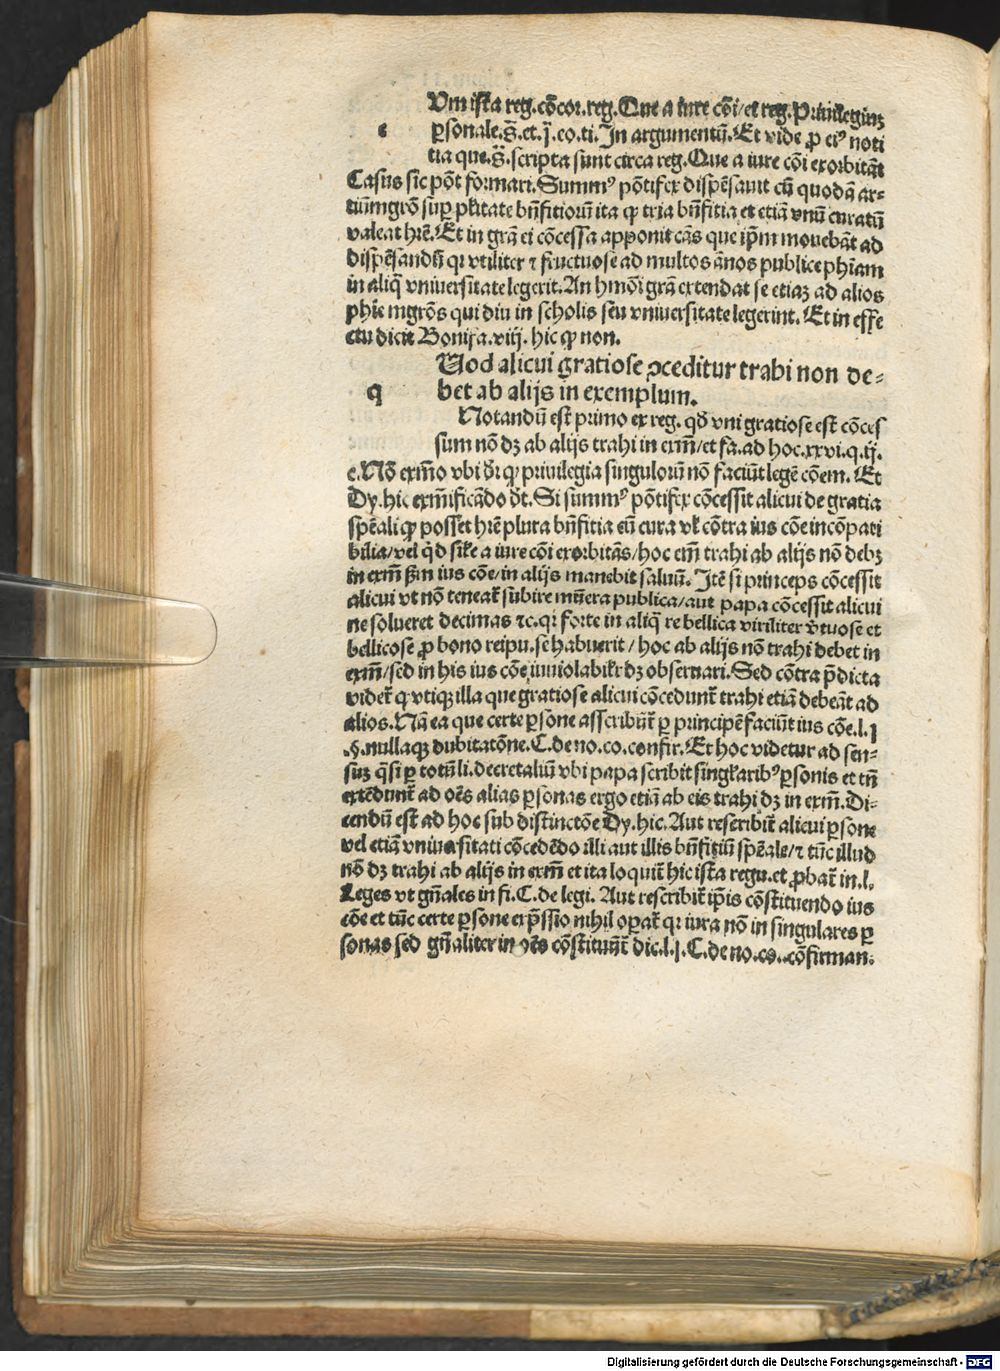 Um ista reg. cōcor. reg. Que a iure cōi/et reg. Priuilegiuꝫ
c
ꝑsonale. s̄. et. j̄. eo. ti. In argumentū. Et vide ꝓ eiꝰ noti
tia que. s̄. scripta sunt circa reg. Que a iure cōi exorbitāt
Casus sic pōt formari. Summꝰ pōtifex dispēsauit cū quodā ar-
tiūmgrō suꝑ plītate bn̄fitioruꝫ ita ꝙ tria bn̄fitia et etiā vnū curatū
valeat hr̄e. Et in grā ei cōcessa apponit cās que ip̄m mouebāt ad
dispēsandū qꝛ vtiliter ⁊ fructuose ad multos ānos publice phīam
in aliq̄ vniuersitate legerit. An hmōi grā extendat se etiaꝫ ad alios
phīe mgrōs qui diu in scholis seu vniuersitate legerint. Et in effe
ctu dicit Bonifa. viij. hic ꝙ non.
Uod alicui gratiose ꝯceditur trahi non de-
q
bet ab alijs in exemplum.
Notandū est primo ex reg. qd̄ vni gratiose est cōces
sum nō dꝫ ab alijs trahi in exm̄/et fa. ad hoc. xxvi. q. ij.
c. Nō exm̄o vbi dr̄ ꝙ priuilegia singulorū nō faciūt legē cōem. Et
Dy. hic exm̄ificādo dt̄. Si summꝰ pōtifex cōcessit alicui de gratia
spēali ꝙ posset hr̄e plura bn̄fitia cū cura vl̄ cōtra ius cōe incōpati
bilia/vel qd̄ sil̄e a iure cōi exorbitās/hoc em̄ trahi ab alijs nō debꝫ
in exm̄ ß̄m ius cōe/in alijs manebit saluū. Itē si princeps cōcessit
alicui vt nō teneat᷑ subire mūera publica/aut papa cōcessit alicui
ne solueret decimas ⁊c. qꝛ forte in aliq̄ re bellica viriliter v̄tuose et
bellicose ꝓ bono reipu. se habuerit/hoc ab alijs nō trahi debet in
exm̄/sed in his ius cōe inuiolabilr̄ dꝫ obseruari. Sed cōtra p̄dicta
videt᷑ ꝙ vtiqꝫ illa que gratiose alicui cōcedunt᷑ trahi etiā debeāt ad
alios. Nā ea que certe ꝑsone asscribūt᷑ ꝑ principē faciūt ius cōe. l. j
.§. nullaqꝫ dubitatōne. C. de no. co. confir. Et hoc videtur ad sen-
suꝫ q̄si ꝑ totū li. decretaliū vbi papa scribit singl̄aribꝰ ꝑsonis et tn̄
extēdunt᷑ ad oēs alias ꝑsonas ergo etiā ab eis trahi dꝫ in exm̄. Di-
cendū est ad hoc sub distinctōe Dy. hic. Aut rescribit᷑ alicui ꝑsone
vel etiā vniuersitati cōcedēdo illi aut illis bn̄fitiū spēale/⁊ tūc illud
nō dꝫ trahi ab alijs in exm̄ et ita loquit᷑ hic ista regu. et ꝓbat᷑ in. l.
Leges vt gn̄ales in fi. C. de legi. Aut rescribit᷑ ip̄is cōstituendo ius
cōe et tūc certe ꝑsone exp̄ssio nihil oꝑat᷑ qꝛ iura nō in singulares ꝑ
sonas sed gn̄aliter in oēs cōstituūt᷑ dic. l. j. C. de no. co. cōfirman.
Digitalisierung gefördert durch die Deutsche Forschungsgemeinschaft - DFG